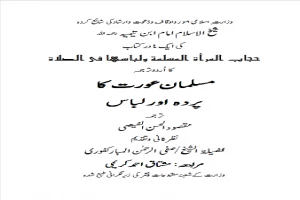 وزارت اسلامی امور و اوقاف و دعوت و ارشاد کی شائع کردہ
شیخ الاسلام امام ابن تیمیہ رحمہ اللہ
کی ایک نادر کتاب
حجاب المرأة المسلمة ولباسها في الصلاة
کا اردو ترجمہ
مسلمان عورت کا
پردہ اور لباس
ترجمہ
مقصود الحسن الفیضی
نظر ثانی و تقدیم
فضیلة الشیخ / صفی الرحمٰن المبارکفوری
مراجعہ: مشتاق احمد کریمی
وزارت کے شعبہ مطبوعات و نشر کی زیر نگرانی طبع شدہ